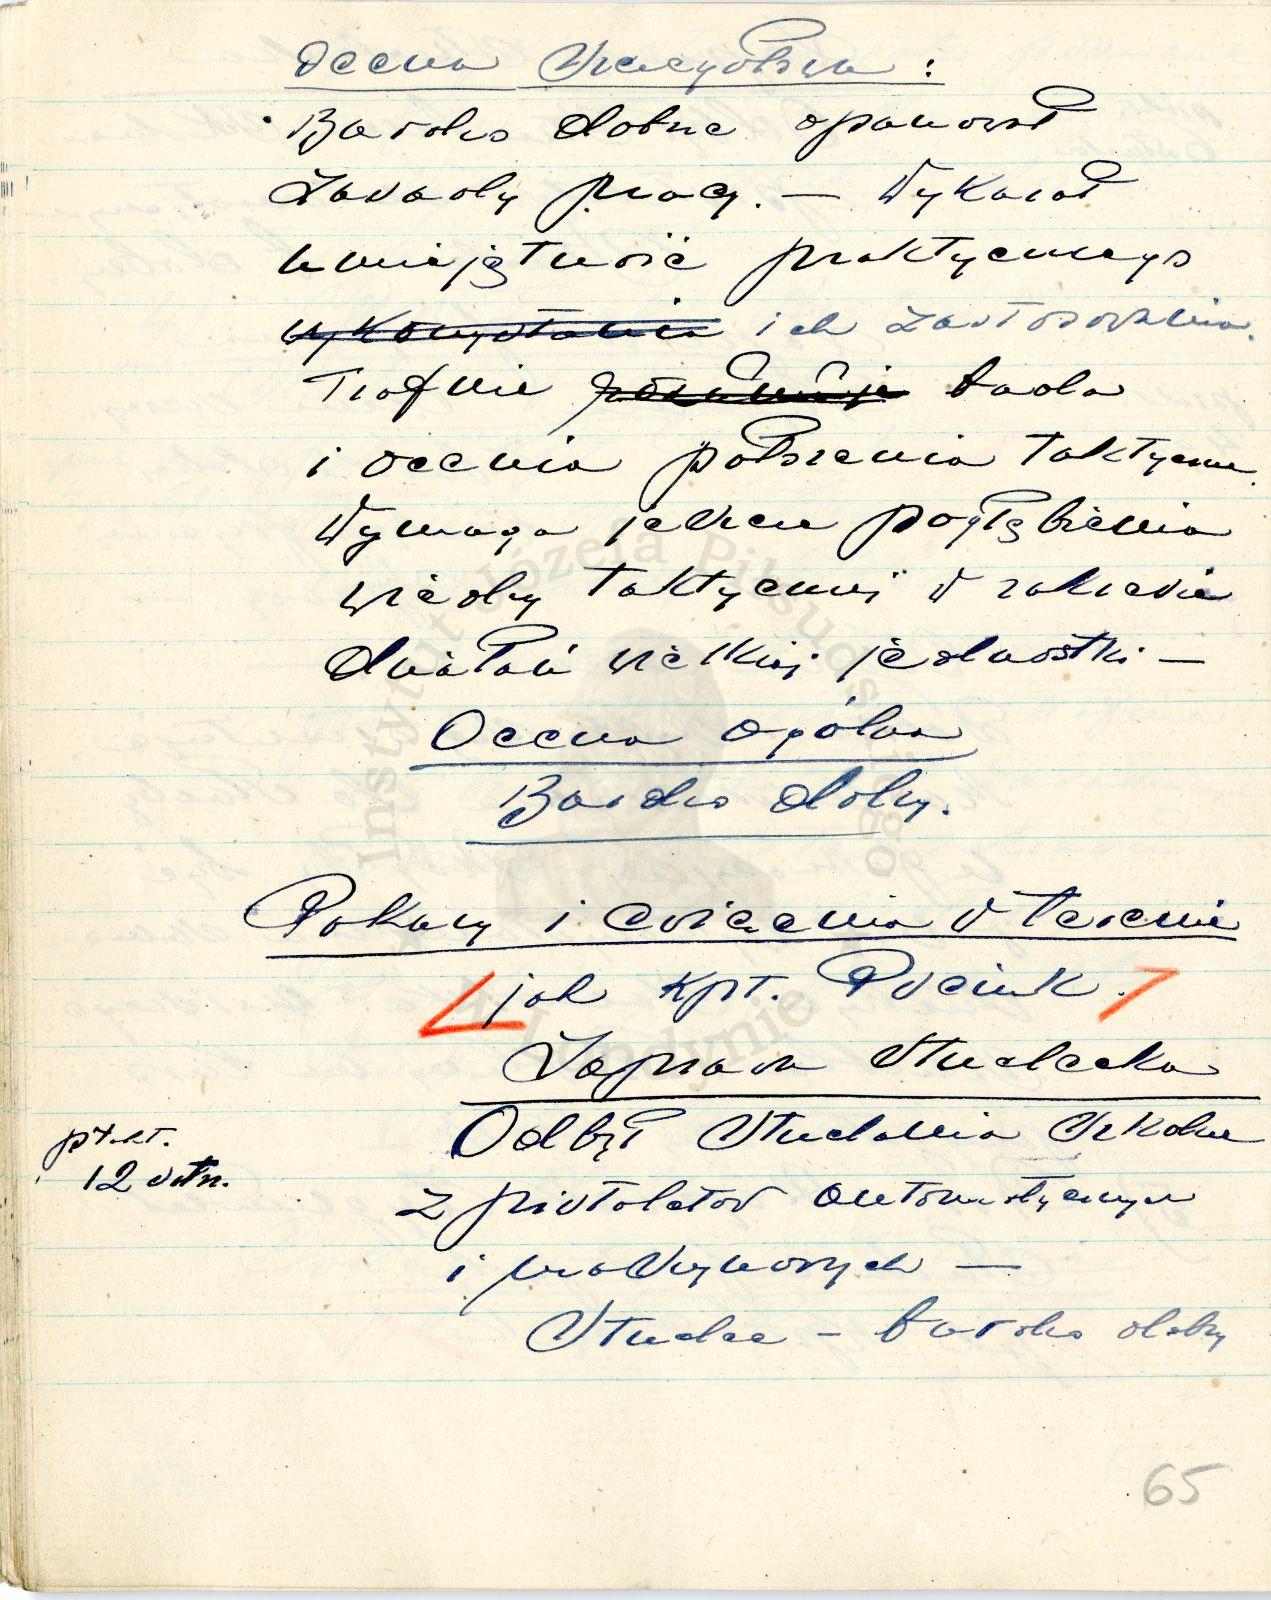 Ocena szczegółowa :
Bardzo dobrze opanował
zasady pracy. — Wykazał
umiejętność praktycznego
wykorzystania ich zastosowania.
Trafnie bada
i ocenia położenia taktyczne.
Wymaga jeszcze pogłębienia
wiedzy taktycznej w zakresie
działań wielkiej jednostki —
Ocena ogólna
Bardzo dobry.
Pokazy i ćwiczenia w terenie
jak kpt. Pociuk.
Zaprawa strzelecka
Odbył strzelania szkolne
pkt.
12 strz.
z pistoletów automatycznych
i maszynowych —
Strzelec – bardzo dobry
65
Instytut Józefa Piłsudskiego
w Londynie